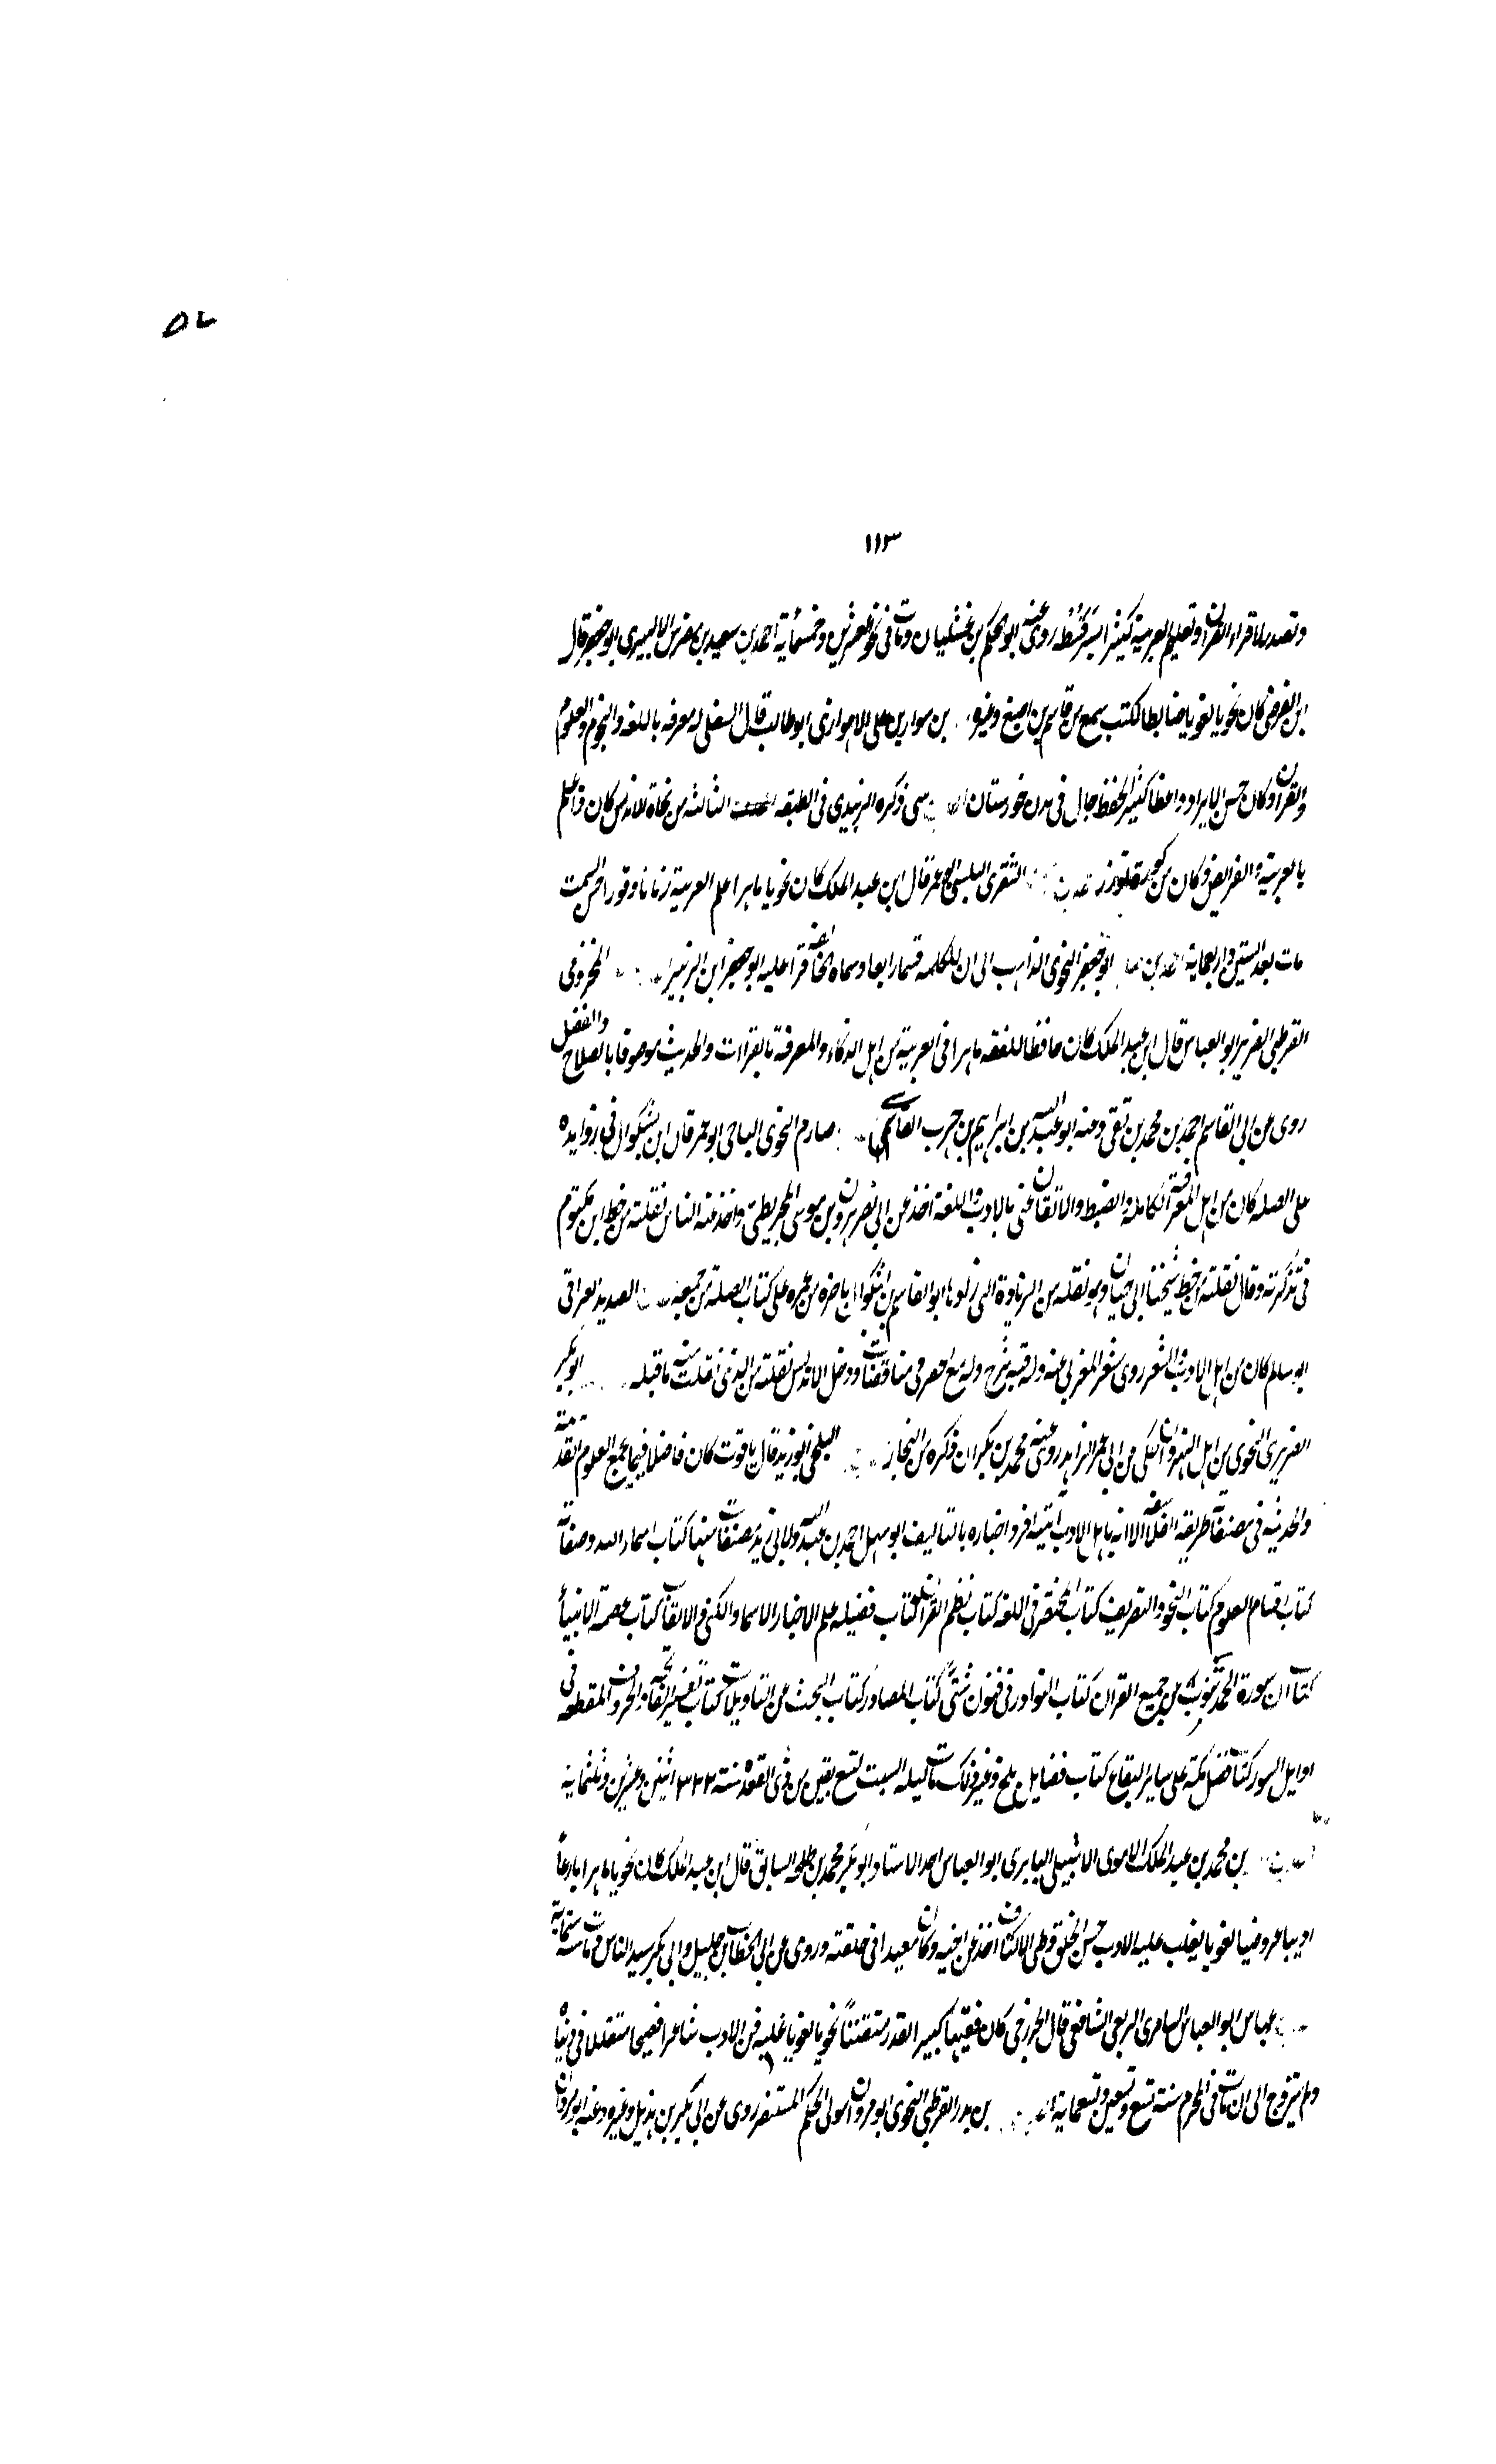 ٥٧
١١٣
وتصدر لاقراء القران وتعليم العربية كثيرا بسرقسطه روى عنه ابو الحكم بن غشليان ومات في نحو عشرين وخمسمائة احمد بن سعيد بن مضرس الالبيري ابو جعفر قال
ابن الفرضي كان نحويا لغويا ضابطا لكتب سمع من قاسم بن اصبغ وغيره بن سوار بن علي الاهوازي ابو طالب قال السلفي له معرفه باللغه والنجوم والعلوم
والقران وكان حسن الايراد واعظا كثير الحفظ جال في مدن خورستان سي ذكره الزبيدي في الطبقه الثالثه من نحاة الاندلس كان ذا علم
بالعربية والفرايض وكان من كورة الشقري البلسي ابو عمر قال ابن عبد الملك كان نحويا ماهرا علم العربية زمانا وقورا حسن السمت
مات بعد الستين واربعماية احمد بن ابو جعفر النحوي الذاهب الى ان للكلمه قسما رابعا وسماه الخالفة قرا عليه ابو جعفر ابن الزبير المخزومي
القرطبي الضرير ابو العباس قال ابن عبد الملك كان حافظا للفقه ماهرا في العربية من اهل الذكاء والمعرفة بالقراات والحديث موصوفا بالصلاح والفضل
روى عن ابي القاسم احمد بن محمد بن تقي وعنه ابو عبد الله بن ابراهيم بن حرب صارم النحوي الباجي ابو عمر قال ابن بشكوال في زوايده
على الصله كان من اهل المعرفة الكاملة والضبط والاتقان عني بالادب واللغة اخذ عن ابي نصر هرون بن موسى المجريطي واخذ عنه الناس نقلته من خط ابن مكتوم
في تذكرته وقال نقلته من خط شيخنا ابي حيان وهو نقله من الزيادة التي زادها ابو القاسم بن بشكوال باخره من عمره على كتاب الصلة من جمعه العراقي
ابو سالم كان من اهل الادب والشعر روى شعر المغربي عنه وله فيه شرح وله مع مناقضات ودخل الاندلس نقلته من الذي نقلت منه ما قبله ابو بكر
الضريري النحوي من اهل النهروان حكى عن ابي عمر الزاهد روى عنه محمد بن بكران ذكره بن النجار البلخي ابو زيد قال ياقوت كان فاضلا فيما يجمع العلوم القديمة
والحديثه في مصنفاته طريقة الفلاسفة الا انه باهل الادب اشبه افرد اخباره بالتاليف ابو سهل احمد بن عبد الله ولابي زيد مصنفات منها كتاب اسماء الله وصفاته
كتاب اقسام العلوم كتاب النحو والتصريف كتاب المختصر في اللغه كتاب نظم القران كتاب فضيله علم الاخبار الاسما والكنى والالقاب كتاب عصمة الانبياء
كتاب ان سورة الحمد تنوب عن جميع القران كتاب النوادر في فنون شتى كتاب المصادر كتاب البحث عن التاويلات كتاب تفسير الفاتحة والحروف المقطعه في
اوايل السور كتاب فضل مكة على ساير البقاع كتاب فضايل بلخ وغير ذلك مات ليله السبت لتسع بقين من ذي القعده سنة ٣٢٢ اثنين وعشرين وثلثماية
بن محمد بن عبد الملك الاموي الاشبيلي اليابري ابو العباس الاستاذ ابو بكر محمد بن طلحه السابق قال ابن عبد الملك كان نحويا ماهرا بارعا
اديبا عروضيا لغويا يغلب عليه الادب حسن الخلق وطي الاكناف اخذ عن اخيه وكان معيدا في حلقته وروى عن ابي الخطاب بن خليل وابي بكر سيد الناس ومات سنة ستماية
عباس ابو العباس السامري الربعي الشافعي قال الخزرجي كان فقيها كبير القدر متفننا نحويا لغويا غلب عليه فن الادب شاعرا فصيحا متقللا في دنياه
ولم يتزوج الى ان مات في المحرم سنة تسع وتسعين وتسعماية بن بدر القرطبي النحوي ابو مروان مولى الحكم المستنصر روى عن ابي بكر بن هذيل وغيره وعنه ابو مروان